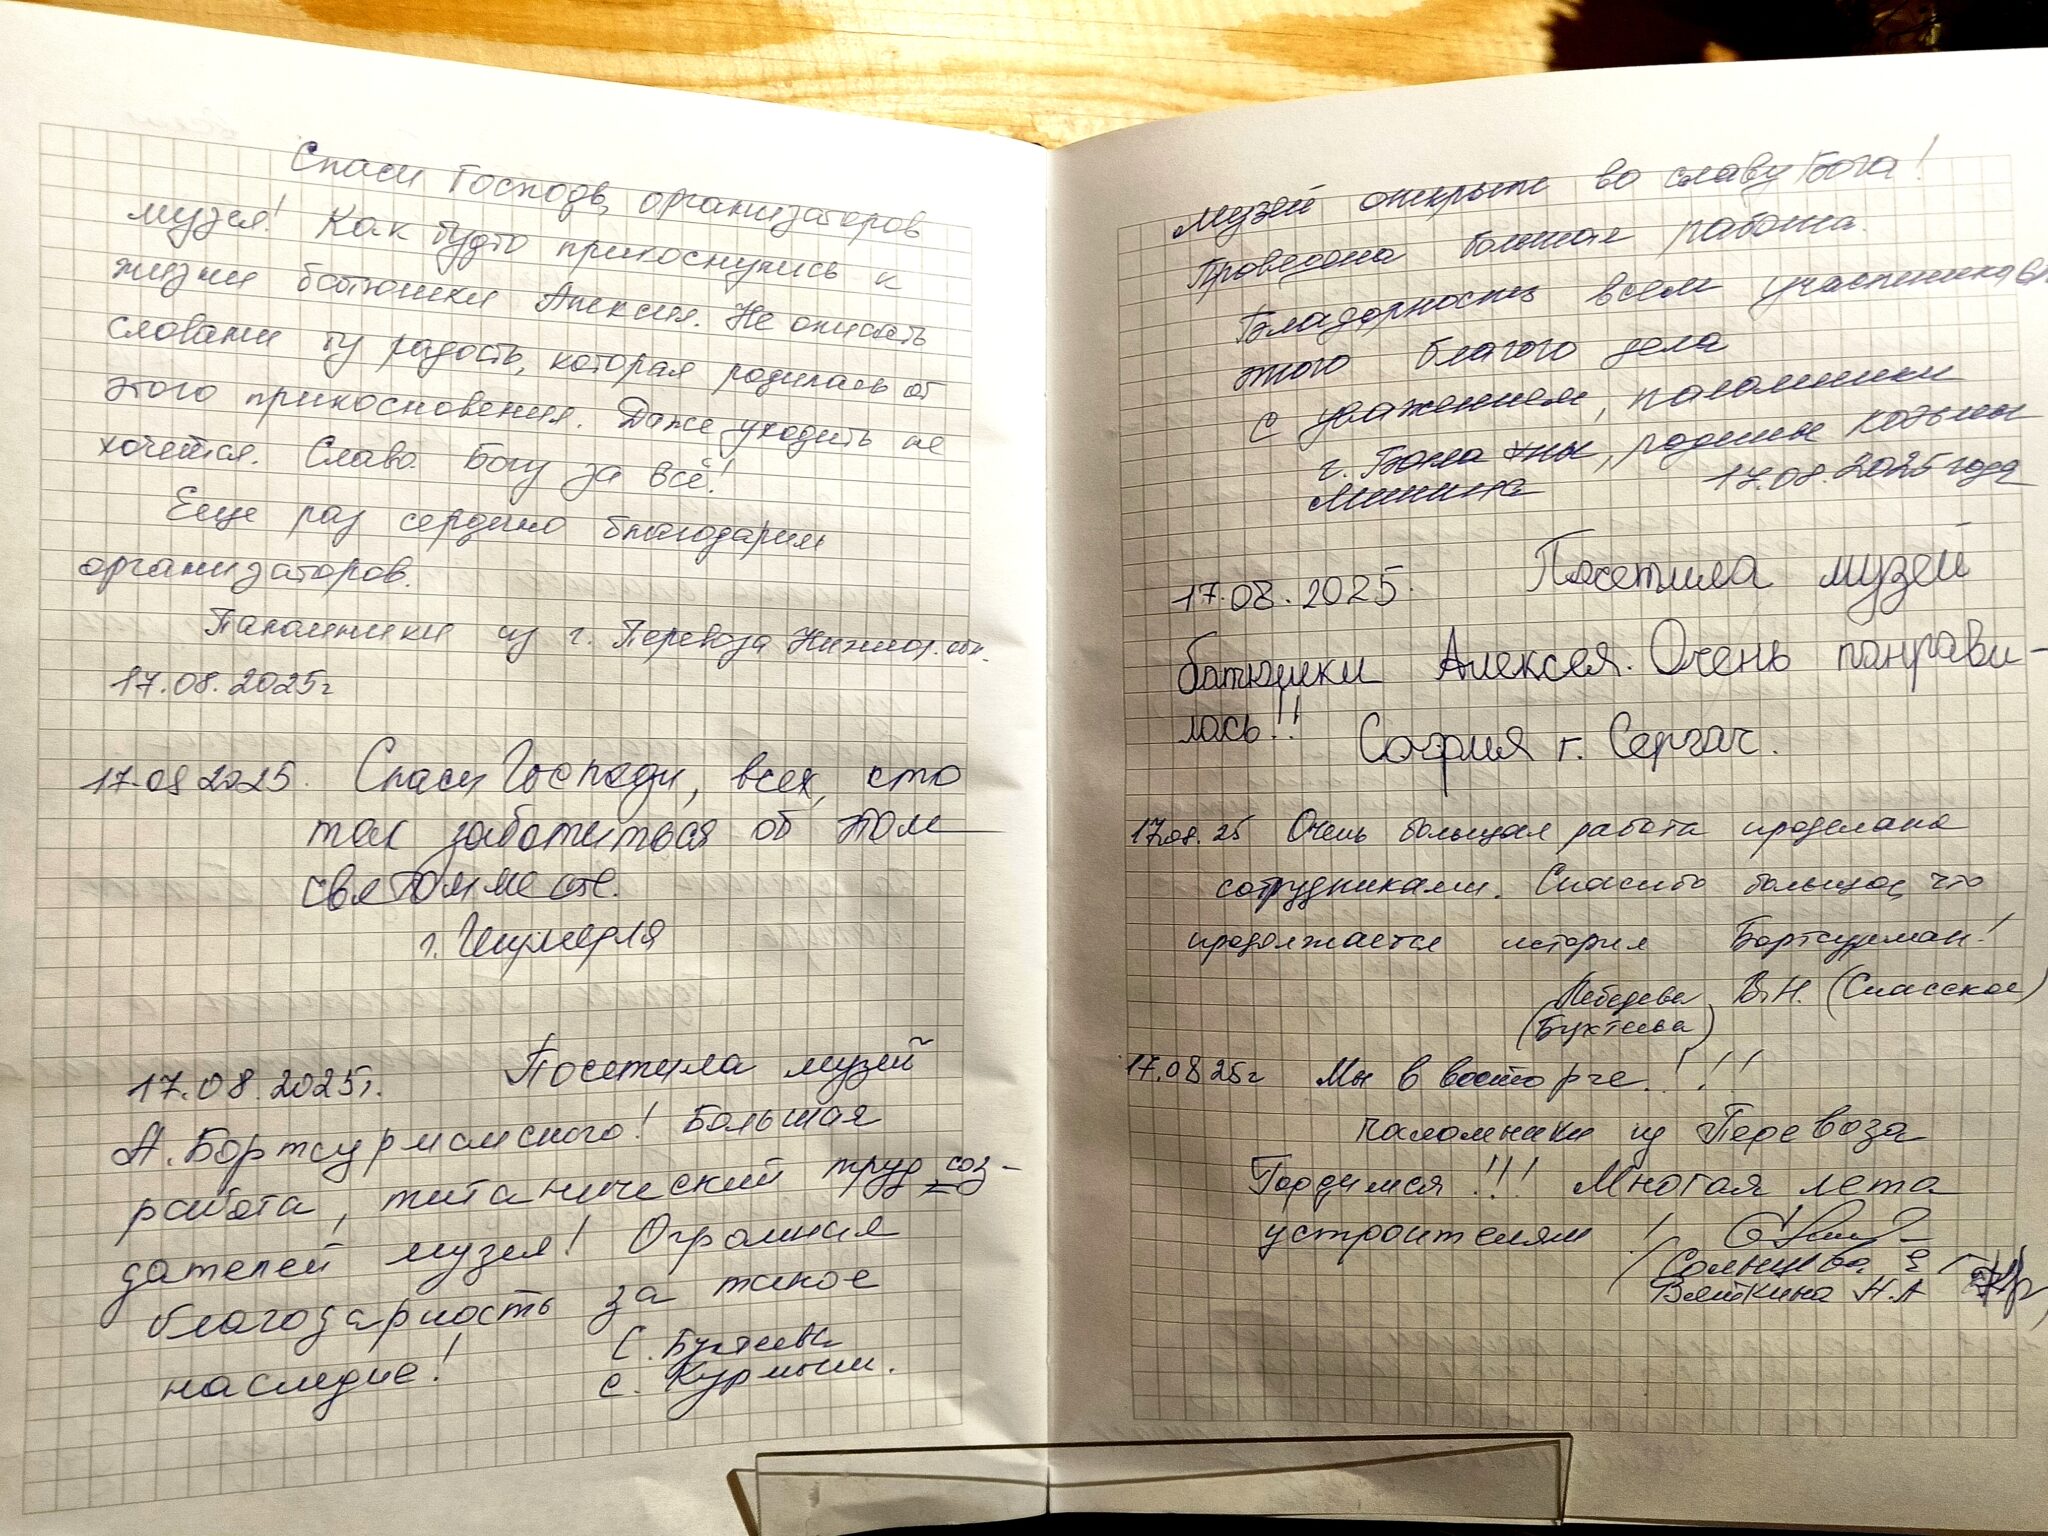 Спаси Господь организаторов
музея! Как будто прикоснулись к
жизни батюшки Алексия. Не описать
словами ту радость, которая родилась от
этого прикосновения. Даже уходить не
хочется. Слава Богу за всё!
Ееще раз сердечно благодарим
организаторов.
Паломники из г. Перевоза Нижегор. обл.
17.08.2025г
17.08 2025. Спаси Господи, всех, кто
так заботиться об этом
святом месте.
г. Шумерля
17.08.2025г. Посетила музей
А. Бортсурманского! Большая
работа, титанический труд соз-
дателей музея! Огромная
благодарность за такое
наследие!
С. Бухтеева
с. Курмыш.
Музей открыт во славу Бога!
Проведена большая работа.
Благодарность всем участникам
этого благого дела
С уважением, паломники
г. Балахны, родины Козьмы
Минина 17.08.2025 года
17.08.2025. Посетила музей
батюшки Алексея. Очень понрави-
лась!!
София г. Сергач.
17.08.25 Очень большая работа проделана
сотрудниками. Спасибо большое, что
продолжается история Бортсурман!
Лебедева В.Н. (Спасское)
(Бухтеева)
17.08 25г Мы в восторге!!!
паломники из Перевоза
Гордимся!!! Многая лета
устроителям!
Солнцева Е
Вяткина Н.А